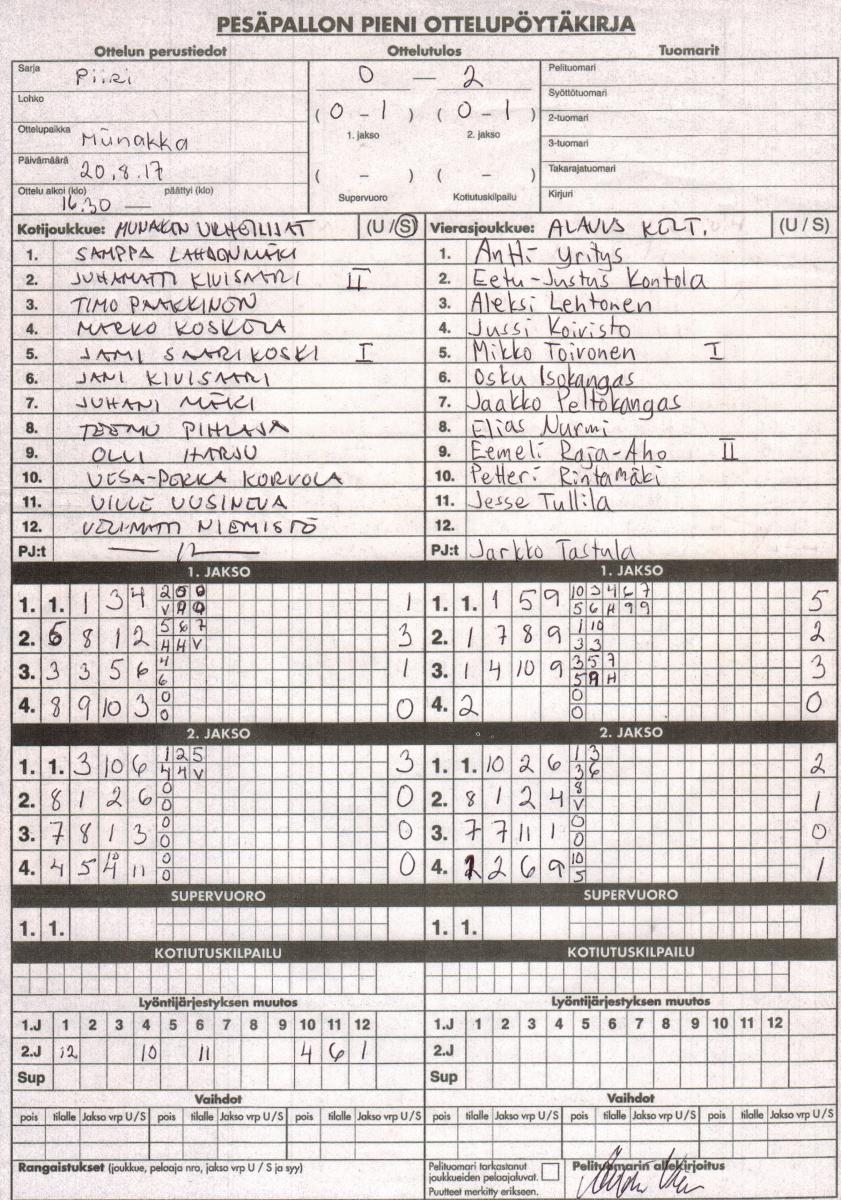 PESÄPALLON PIENI OTTELUPÖYTÄKIRJA
Ottelun perustiedot Ottelutulos Tuomarit
Sarja Piiri
Lohko
Ottelupaikka Münakka
Päivämäärä 20.8.17
Ottelu alkoi (klo) päättyi (klo)
16.30 —
0 — 2
(0 - 1) (0 - 1)
1. jakso 2. jakso
( - ) ( - )
Supervuoro Kotiutuskilpailu
Pelituomari
Syöttötuomari
2-tuomari
3-tuomari
Takarajatuomari
Kirjuri
Kotijoukkue: MUNAKAN URHEILIJAT (U / S)
1. SAMPPA LAHDENMÄKI
2. JUHAMATTI KIVISAARI II
3. TIMO PAAKKINEN
4. MARKO KOSKELA
5. JAMI SAARIKOSKI I
6. JANI KIVISAARI
7. JUHANI MÄKI
8. TEEMU PIHLAJA
9. OLLI HARJU
10. VESA-PEKKA KORVOLA
11. VILLE UUSINEVA
12. VELIMATTI NIEMISTÖ
PJ:t — 12 —
Vierasjoukkue: ALAVUS KELT. (U / S)
1. Antti Yritys
2. Eetu-Justus Kontola
3. Aleksi Lehtonen
4. Jussi Koivisto
5. Mikko Toivonen I
6. Osku Isokangas
7. Jaakko Peltokangas
8. Elias Nurmi
9. Eemeli Raja-Aho II
10. Petteri Rintamäki
11. Jesse Tullila
12.
PJ:t Jarkko Tastula
1. JAKSO
1. 1. 1 3 4 2 0 0 1
V 0
2. 6 8 1 2 5 6 7 3
H H V
3. 3 3 5 6 4 1
6
4. 8 9 10 3 0 0
0
1. JAKSO
1. 1. 1 5 9 10 3 4 6 7 5
5 6 H 9 9
2. 1 7 8 9 1 10 2
3 3
3. 1 4 10 9 3 5 7 3
5 9 H
4. 2 0 0
0
2. JAKSO
1. 1. 3 10 6 1 2 5 3
4 4 V
2. 8 1 2 6 0 0
0
3. 7 8 1 3 0 0
0
4. 4 5 4 11 0 0
0
2. JAKSO
1. 1. 10 2 6 1 3 2
3 6
2. 8 1 2 4 8 1
V
3. 7 7 11 1 0 0
0
4. 2 6 9 10 1
5
SUPERVUORO
1. 1.
SUPERVUORO
1. 1.
KOTIUTUSKILPAILU
KOTIUTUSKILPAILU
Lyöntijärjestyksen muutos
1.J 1 2 3 4 5 6 7 8 9 10 11 12
2.J 12 10 11 4 6 1
Sup
Lyöntijärjestyksen muutos
1.J 1 2 3 4 5 6 7 8 9 10 11 12
2.J
Sup
Vaihdot
pois tilalle Jakso vrp U/S pois tilalle Jakso vrp U/S pois tilalle Jakso vrp U/S
Vaihdot
pois tilalle Jakso vrp U/S pois tilalle Jakso vrp U/S pois tilalle Jakso vrp U/S
Rangaistukset (joukkue, pelaaja nro, jakso vrp U / S ja syy)
Pelituomari tarkastanut
joukkueiden pelaajaluvat.
Puutteet merkitty erikseen.
Pelituomarin allekirjoitus